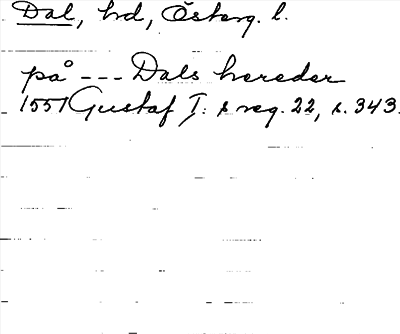 Dal, hd, Österg. l.
på --- Dals hereder
1551 Gustaf I:s reg. 22, s. 343.